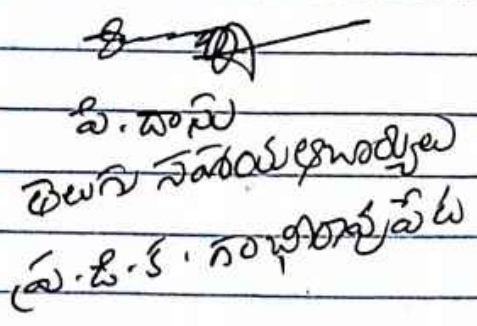 పి. దాసు
తెలుగు సహాయఆచార్యులు
ప్ర.డి.క. గంభీరావుపేట